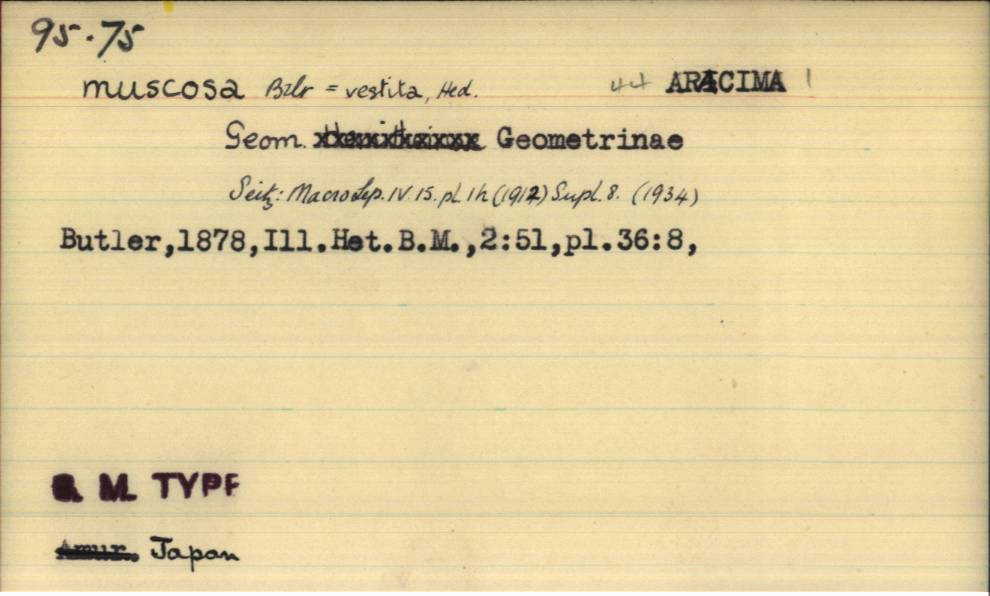 95.75
muscosa Btlr = vestita, Hed. 44 ARACIMA 1
Geom. Geometrinae
Seitz: MacroLep. IV. 15. pl. 1h (1912) Supl. 8. (1934)
Butler,1878,Ill.Het.B.M.,2:51,pl.36:8,
B. M. TYPE
Amur. Japan